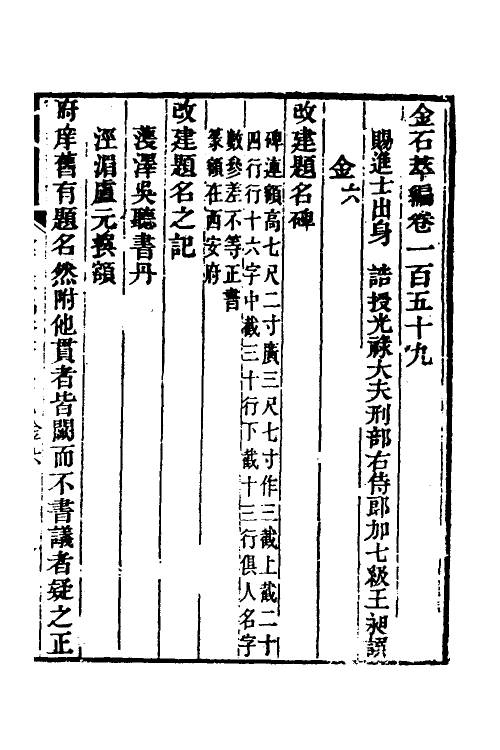 金石萃編卷一百五十九
賜進士出身　誥授光祿大夫刑部右侍郎加七級王昶譔
金六
改建題名碑
碑連額高七尺二寸廣三尺七寸作三截上截二十
四行行十六字中截三十行下截十三行俱人名字
數參差不等正書
篆額在西安府
改建題名之記
濩澤吳聽書丹
涇湄盧元譔額
府庠舊有題名然附他貫者皆闕而不書議者疑之正